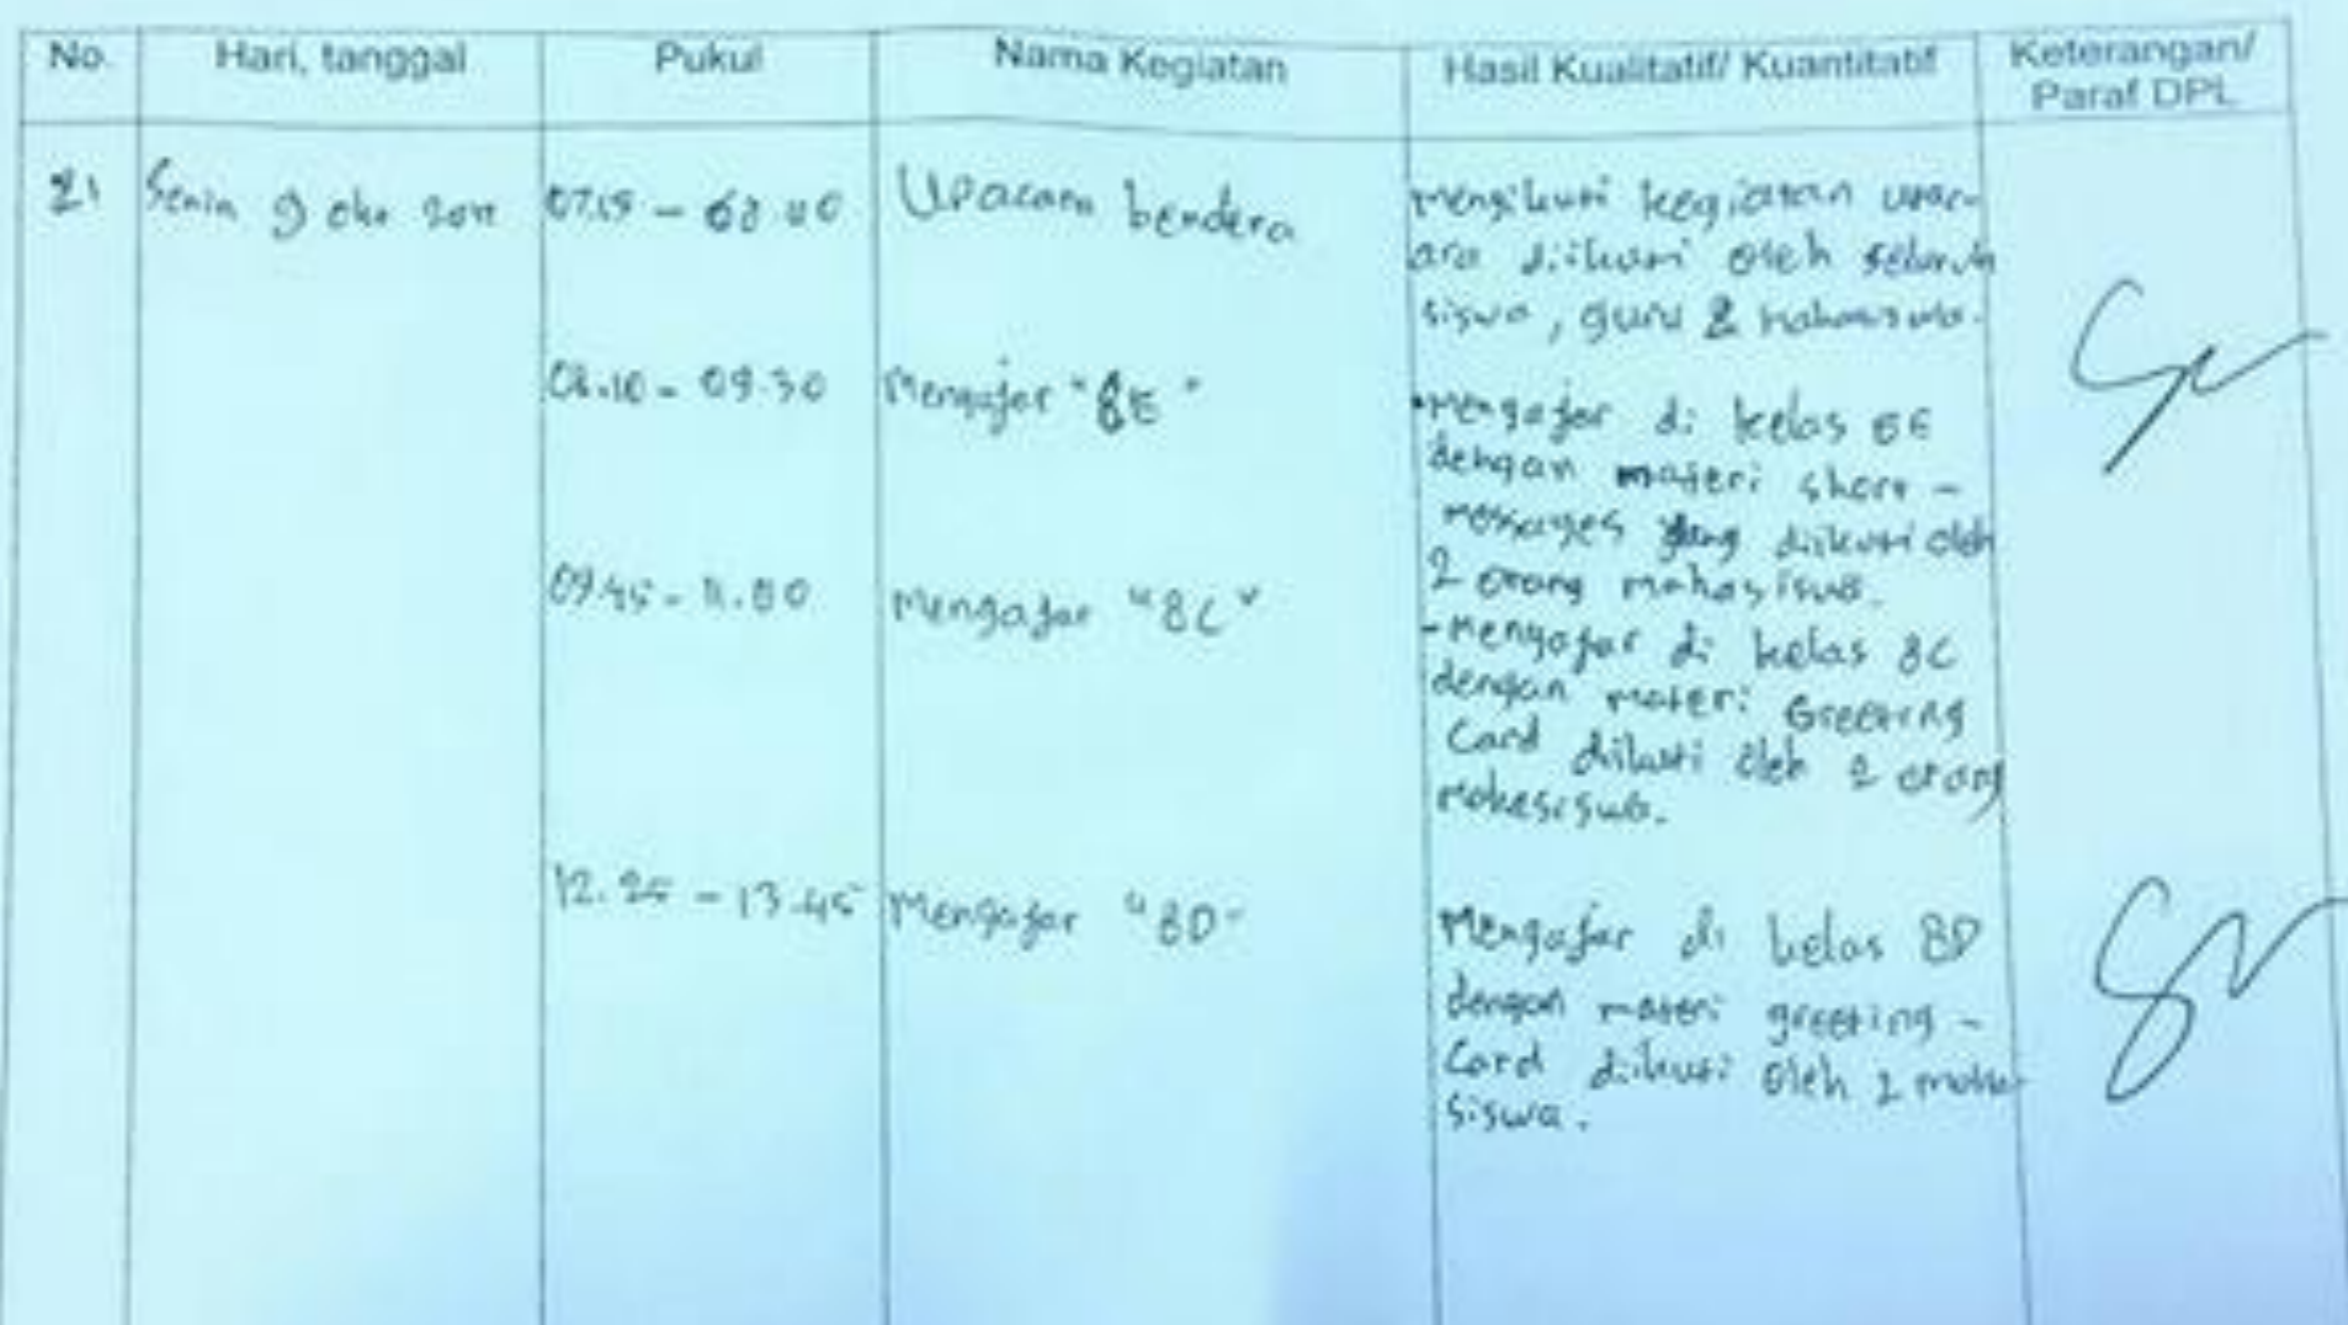 No. Hari, tanggal Pukul Nama Kegiatan Hasil Kualitatif/ Kuantitatif Keterangan/
Paraf DPL
21 Senin 9 okt 07.15 - Upacara bendera mengikuti kegiatan upac-
ara diikuti oleh seluruh
siswa, guru & mahasiswa.
08.10 - 09.30 Mengajar "8E"
-Mengajar di kelas 8E
dengan materi short -
messages yang diikuti oleh
2 orang mahasiswa.
09.45 - 11.00 Mengajar "8C"
-Mengajar di kelas 8C
dengan materi Greeting
Card diikuti oleh 2 orang
mahasiswa.
12.25 - 13.45 Mengajar "8D"
Mengajar di kelas 8D
dengan materi greeting -
Card diikuti oleh 2 maha-
siswa.